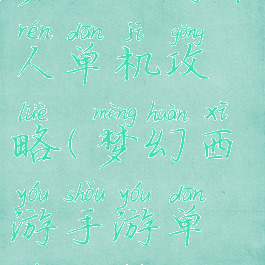 rén dān jī gōng
人单机攻
lüè mèng huàn xī
略(梦幻西
yóu shǒu yóu dān
游手游单